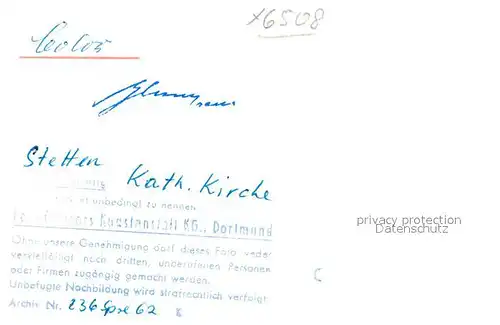 x6508
Color
Stetten Kath. Kirche
ist unbedingt zu nennen
Kunstanstalt KG., Dortmund
privacy protection
Datenschutz
Ohne unsere Genehmigung darf dieses Foto weder
vervielfältigt noch dritten, unbefugten Personen
oder Firmen zugängig gemacht werden.
Unbefugte Nachbildung wird strafrechtlich verfolgt
C
Archiv Nr. 236 Spre 62 K